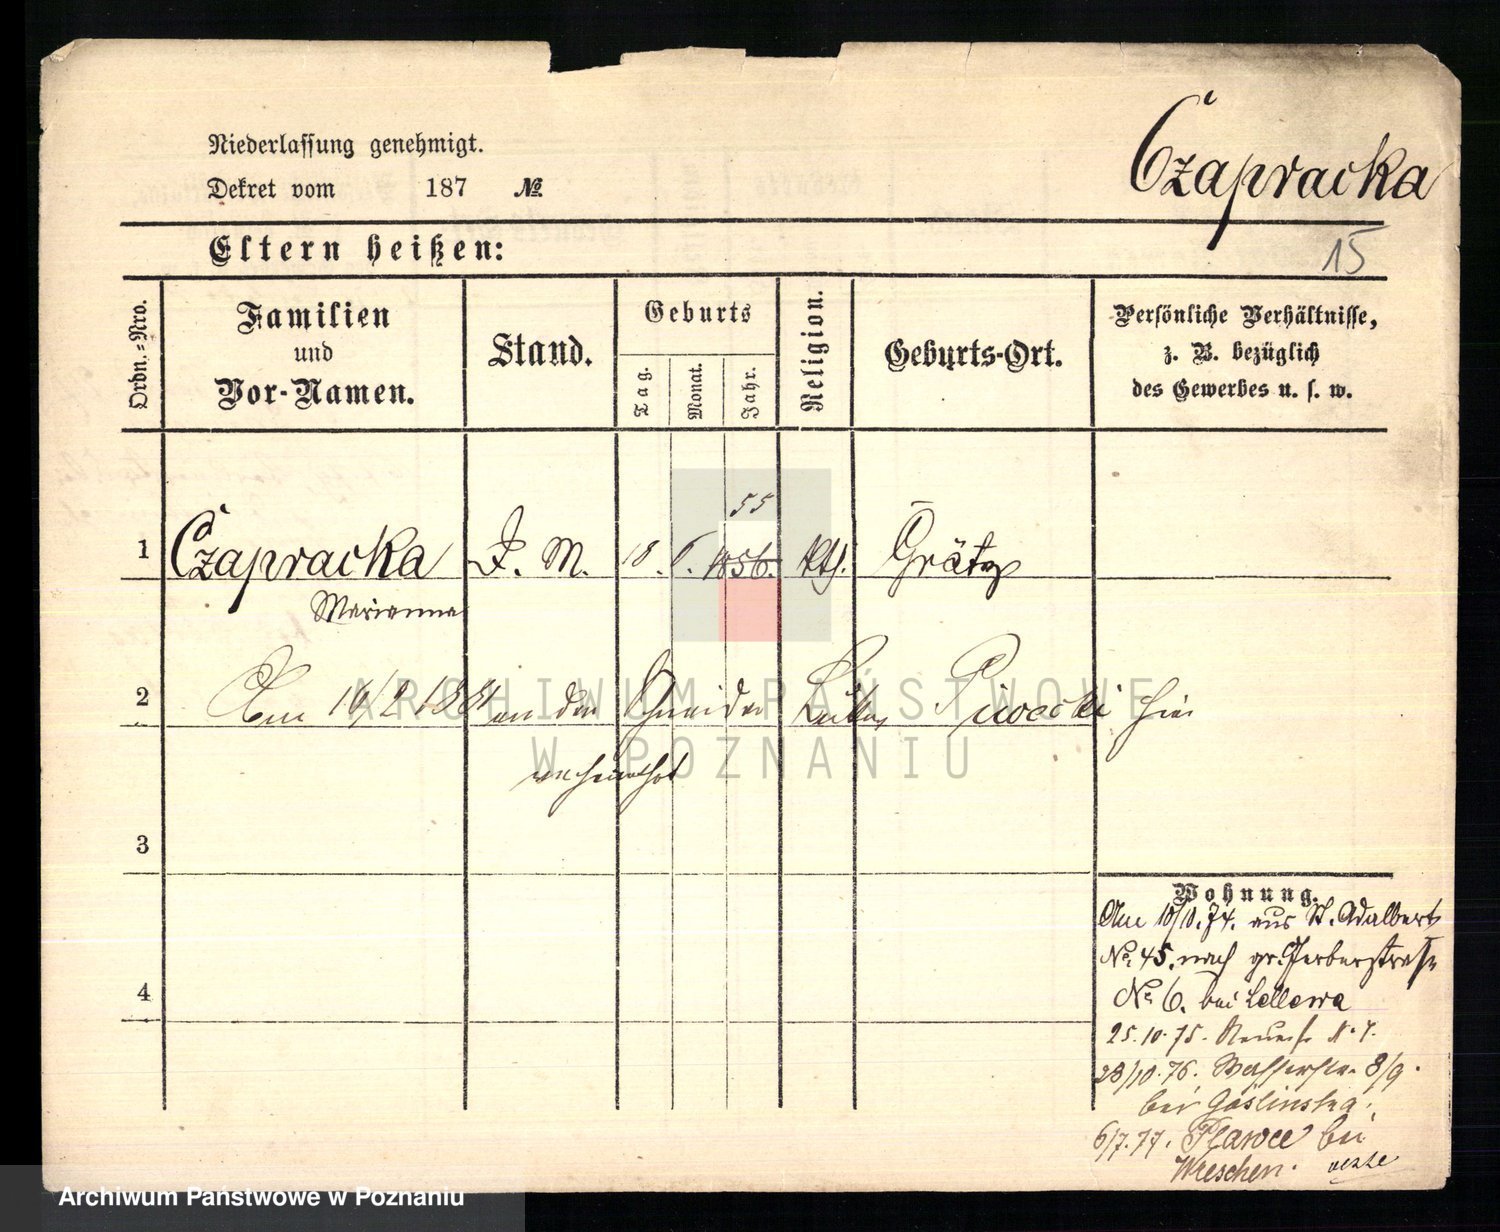 Czapracka
Niederlassung genehmigt.
Dekret vom 187 №
15
Eltern heißen:
Ordn.-Nro.
Familien
und
Vor-Namen.
Stand.
Geburts
Tag.
Monat.
Jahr.
Religion.
Geburts-Ort.
Persönliche Verhältnisse,
z. B. bezüglich
des Gewerbes u. s. w.
55
1 Czapracka D. M. 18. 6. 1856. kth. Grätz
Marianna
2 Am 16/2 1881 an den Schneider Piwecki hier
verheirathet
3
4
Wohnung.
Am 10/10.74. aus St. Adalbert
№ 45. nach gr. Gerberstraße
№ 6. bei Lellewa
25.10.75. Neuestr. N. 7.
28/10.76. Wasserstr. 8/9.
bei Goslinska.
6/7.77. Plawce bei
Wreschen.
ARCHIWUM PAŃSTWOWE
W POZNANIU
Archiwum Państwowe w Poznaniu